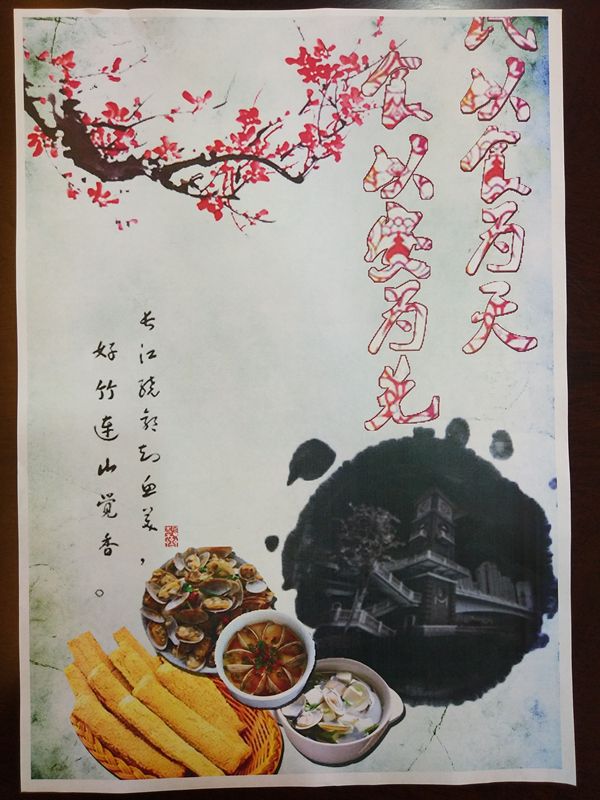 民以食为天
食以安为先
长江绕郭知鱼美，
好竹连山觉香。